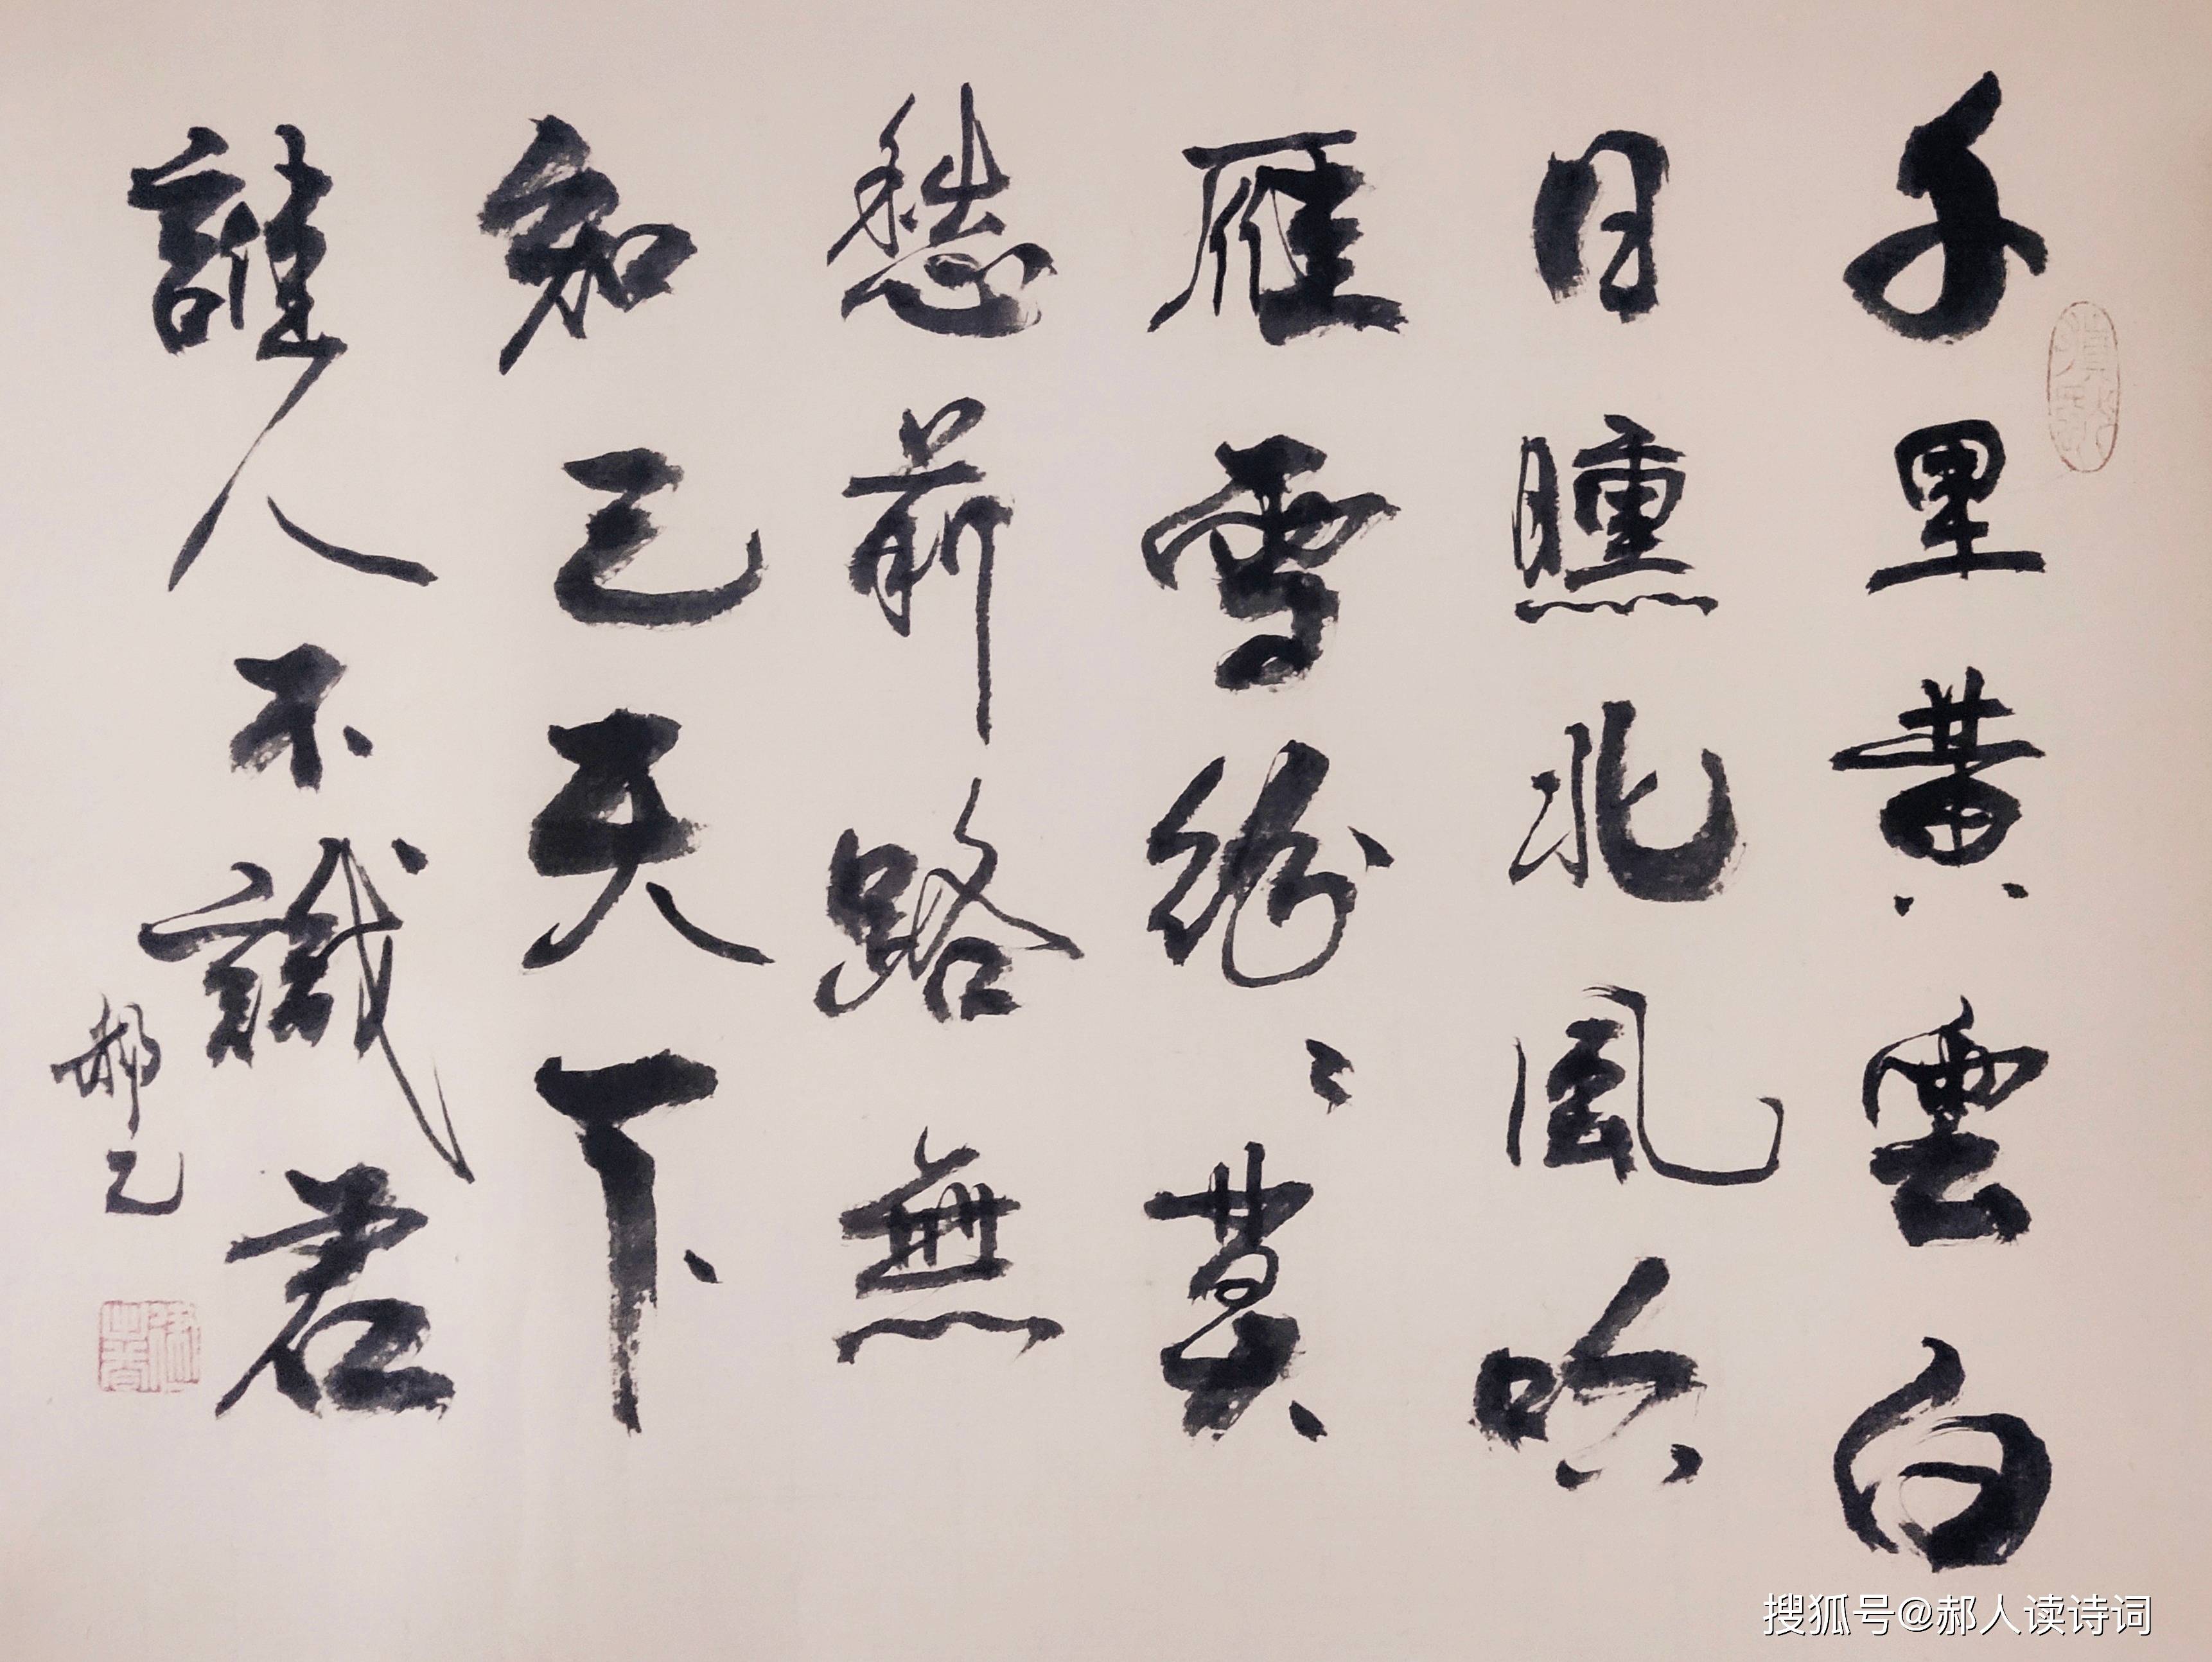 千里黄雲白
日曛北風吹
雁雪紛〻莫
愁前路無
知己天下
誰人不識君
郝
搜狐号@郝人读诗词